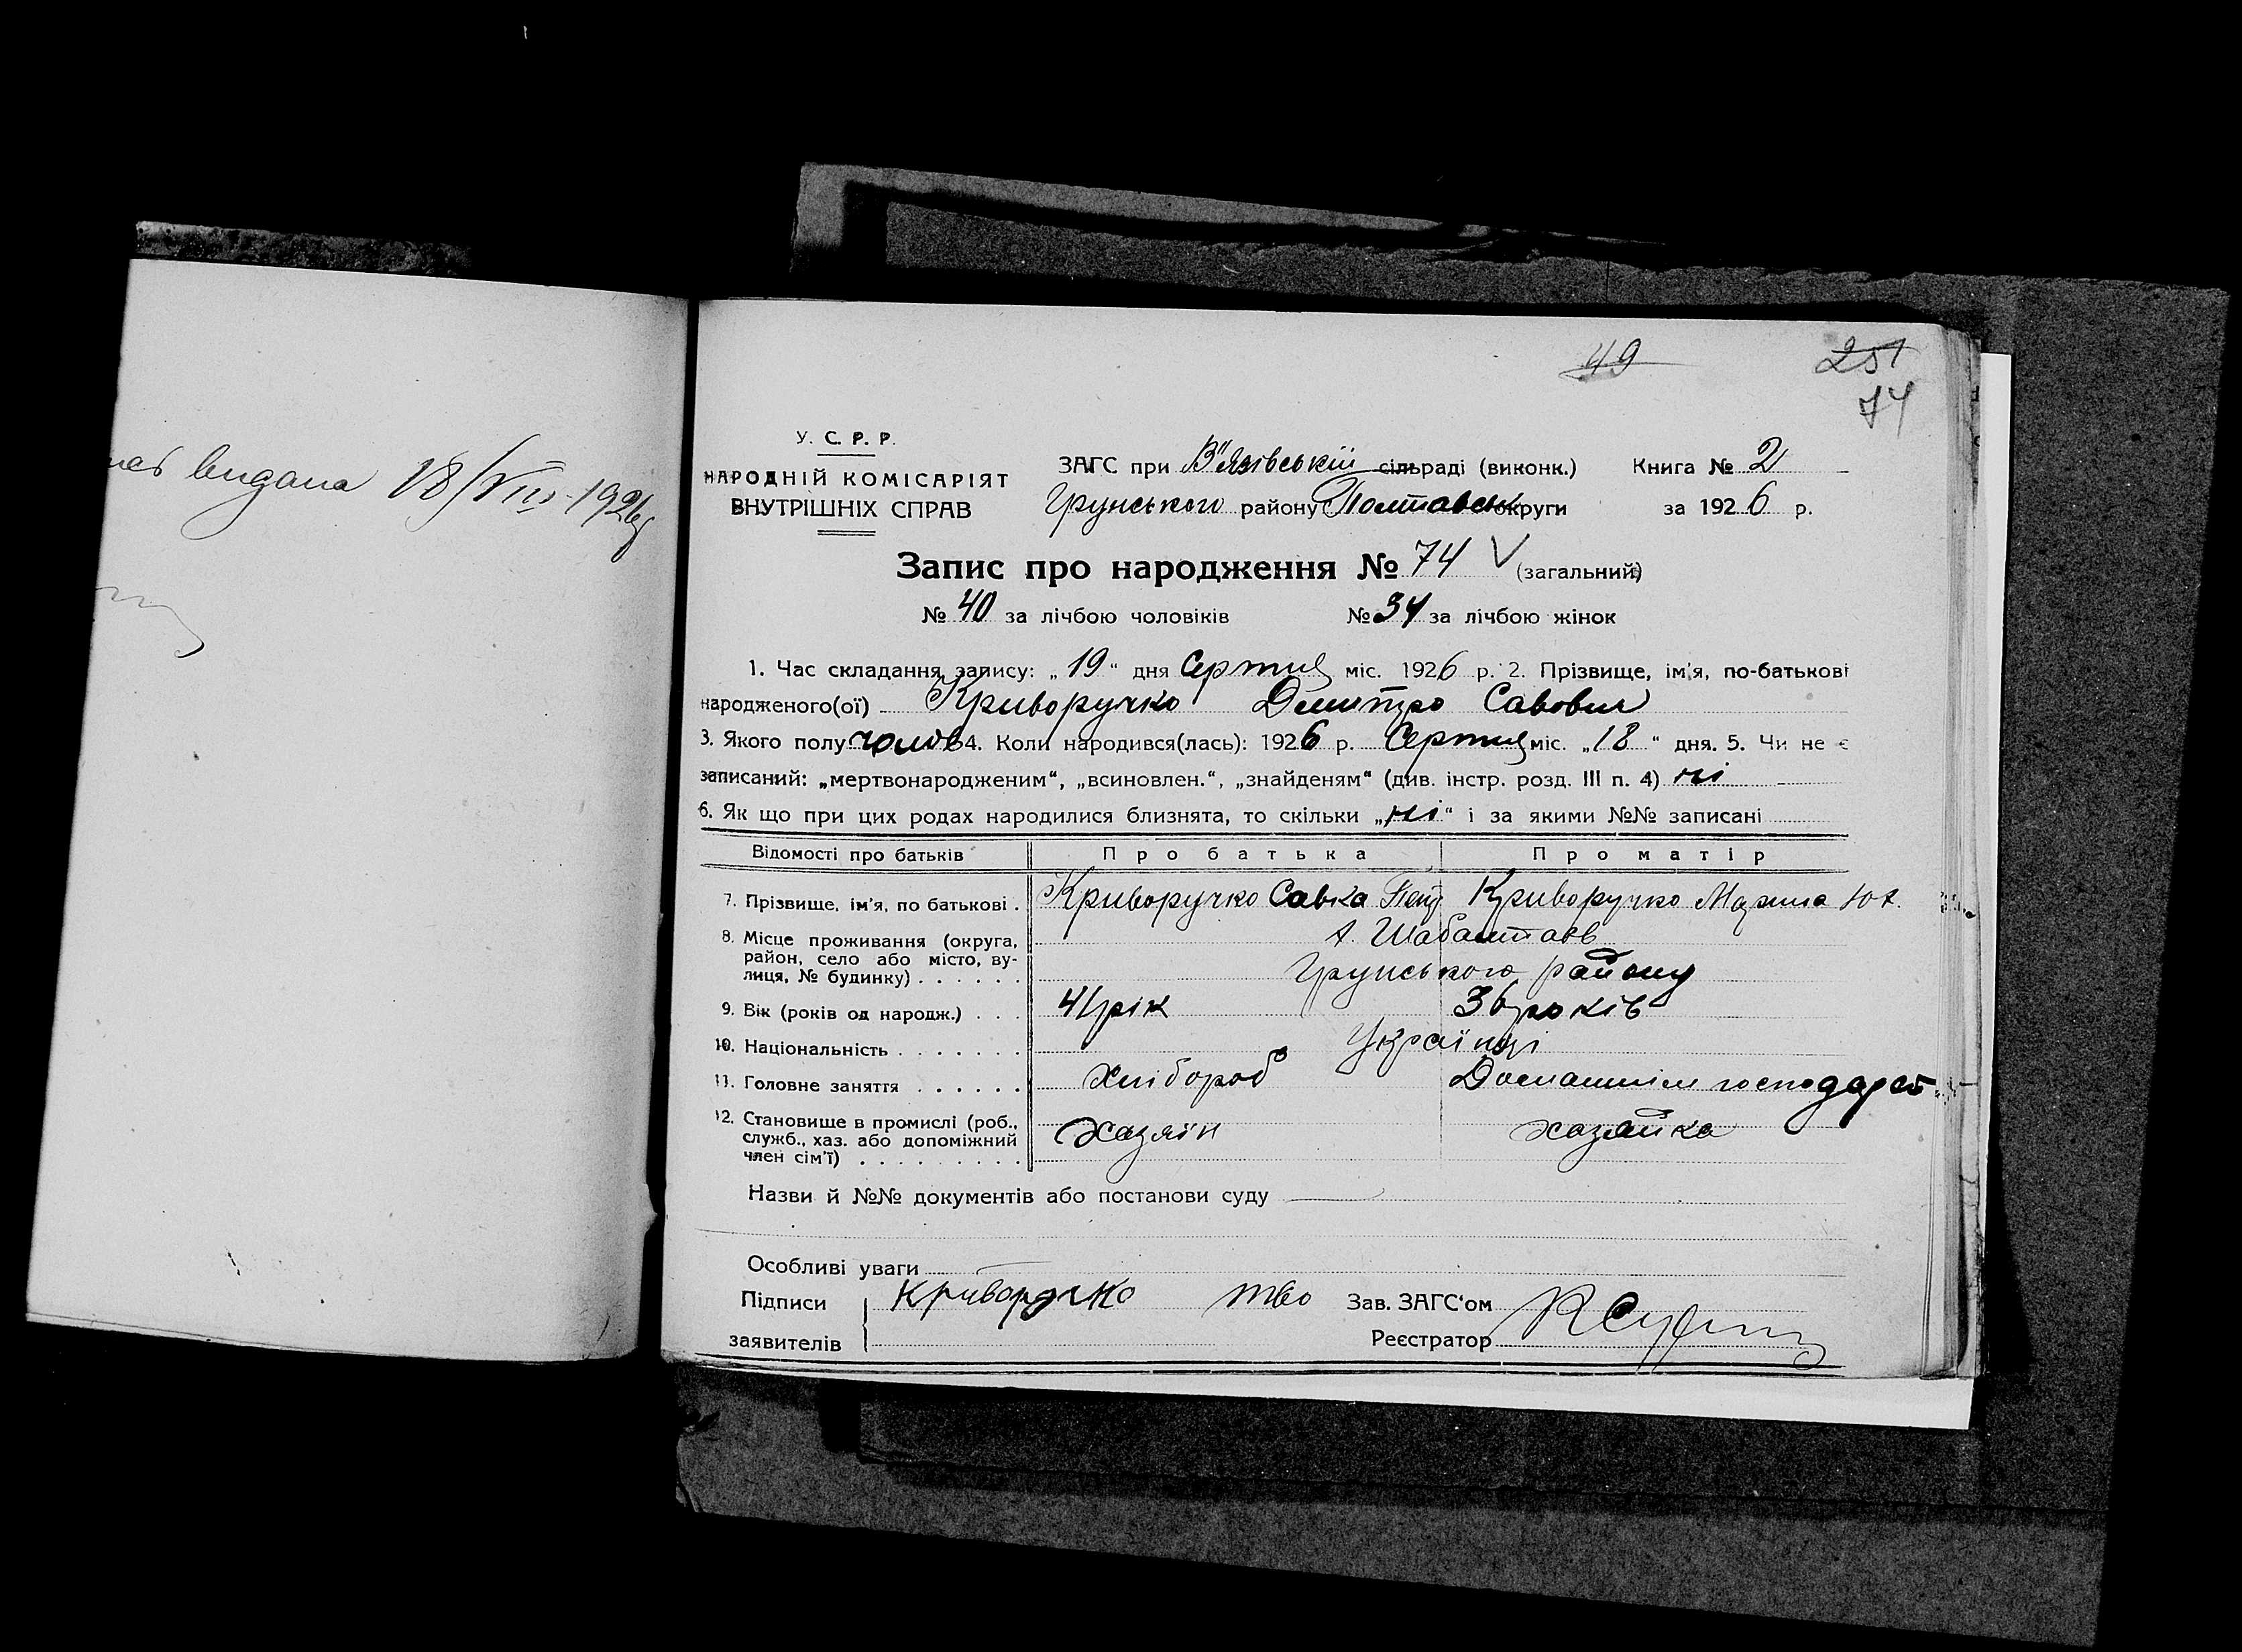 видана 18/VIII-1926
49 251
74
У. С. Р. Р.
НАРОДНІЙ КОМІСАРІЯТ
ВНУТРІШНІХ СПРАВ
ЗАГС при В'язівській сільраді (виконк.) Книга № 2
Грунського району Полтавськ округи за 1926 р.
Запис про народження № 74 V (загальний)
№ 40 за лічбою чоловіків № 34 за лічбою жінок
1. Час складання запису: „19“ дня Серпня міс. 1926 р. 2. Прізвище, ім'я, по-батькові
народженого(ої) Криворучко Дмитро Савович
3. Якого полу чолов 4. Коли народився(лась): 1926 р. Серпня міс. „18“ дня. 5. Чи не є
записаний: „мертвонародженим“, „всиновлен.“, „знайденям“ (див. інстр. розд. III п. 4) ні
6. Як що при цих родах народилися близнята, то скільки „ні“ і за якими №№ записані
Відомості про батьків Про батька Про матір
7. Прізвище, ім'я, по батькові . Криворучко Савка Пет Криворучко Марина
8. Місце проживання (округа, х. Шабалтаєв
район, село або місто, ву-
лиця, № будинку) . . . . . . Грунського району
9. Вік (років од народж.) . . . 41 рік 36 років
10. Національність . . . . . . . Українці
11. Головне заняття . . . . . . Хлібороб Домашнім господарст
12. Становище в промислі (роб.,
служб., хаз. або допоміжний Хазяїн хазяйка
член сім'ї) . . . . . . . . .
Назви й №№ документів або постанови суду
Особливі уваги
Підписи Криворучко Зав. ЗАГС'ом
заявителів Реєстратор